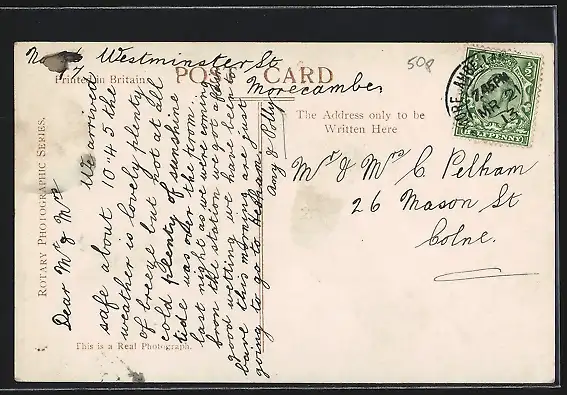 7 Westminster St
Morecambe
Printed in Britain
POST CARD
The Address only to be
Written Here
ROTARY PHOTOGRAPHIC SERIES.
This is a Real Photograph.
508
7.45PM
MR 2
13
HALFPENNY
Dear Mr & Mrs
We arrived
safe about 10-45 the
weather is lovely plenty
of breeze but not at all
cold plenty of sunshine
tide was over the prom
last night as we were coming
from the station we got a
good wetting we have been to
this morning are just
going to go to Heysham
Amy & Polly
Mr & Mrs C Pelham
26 Mason St
Colne.